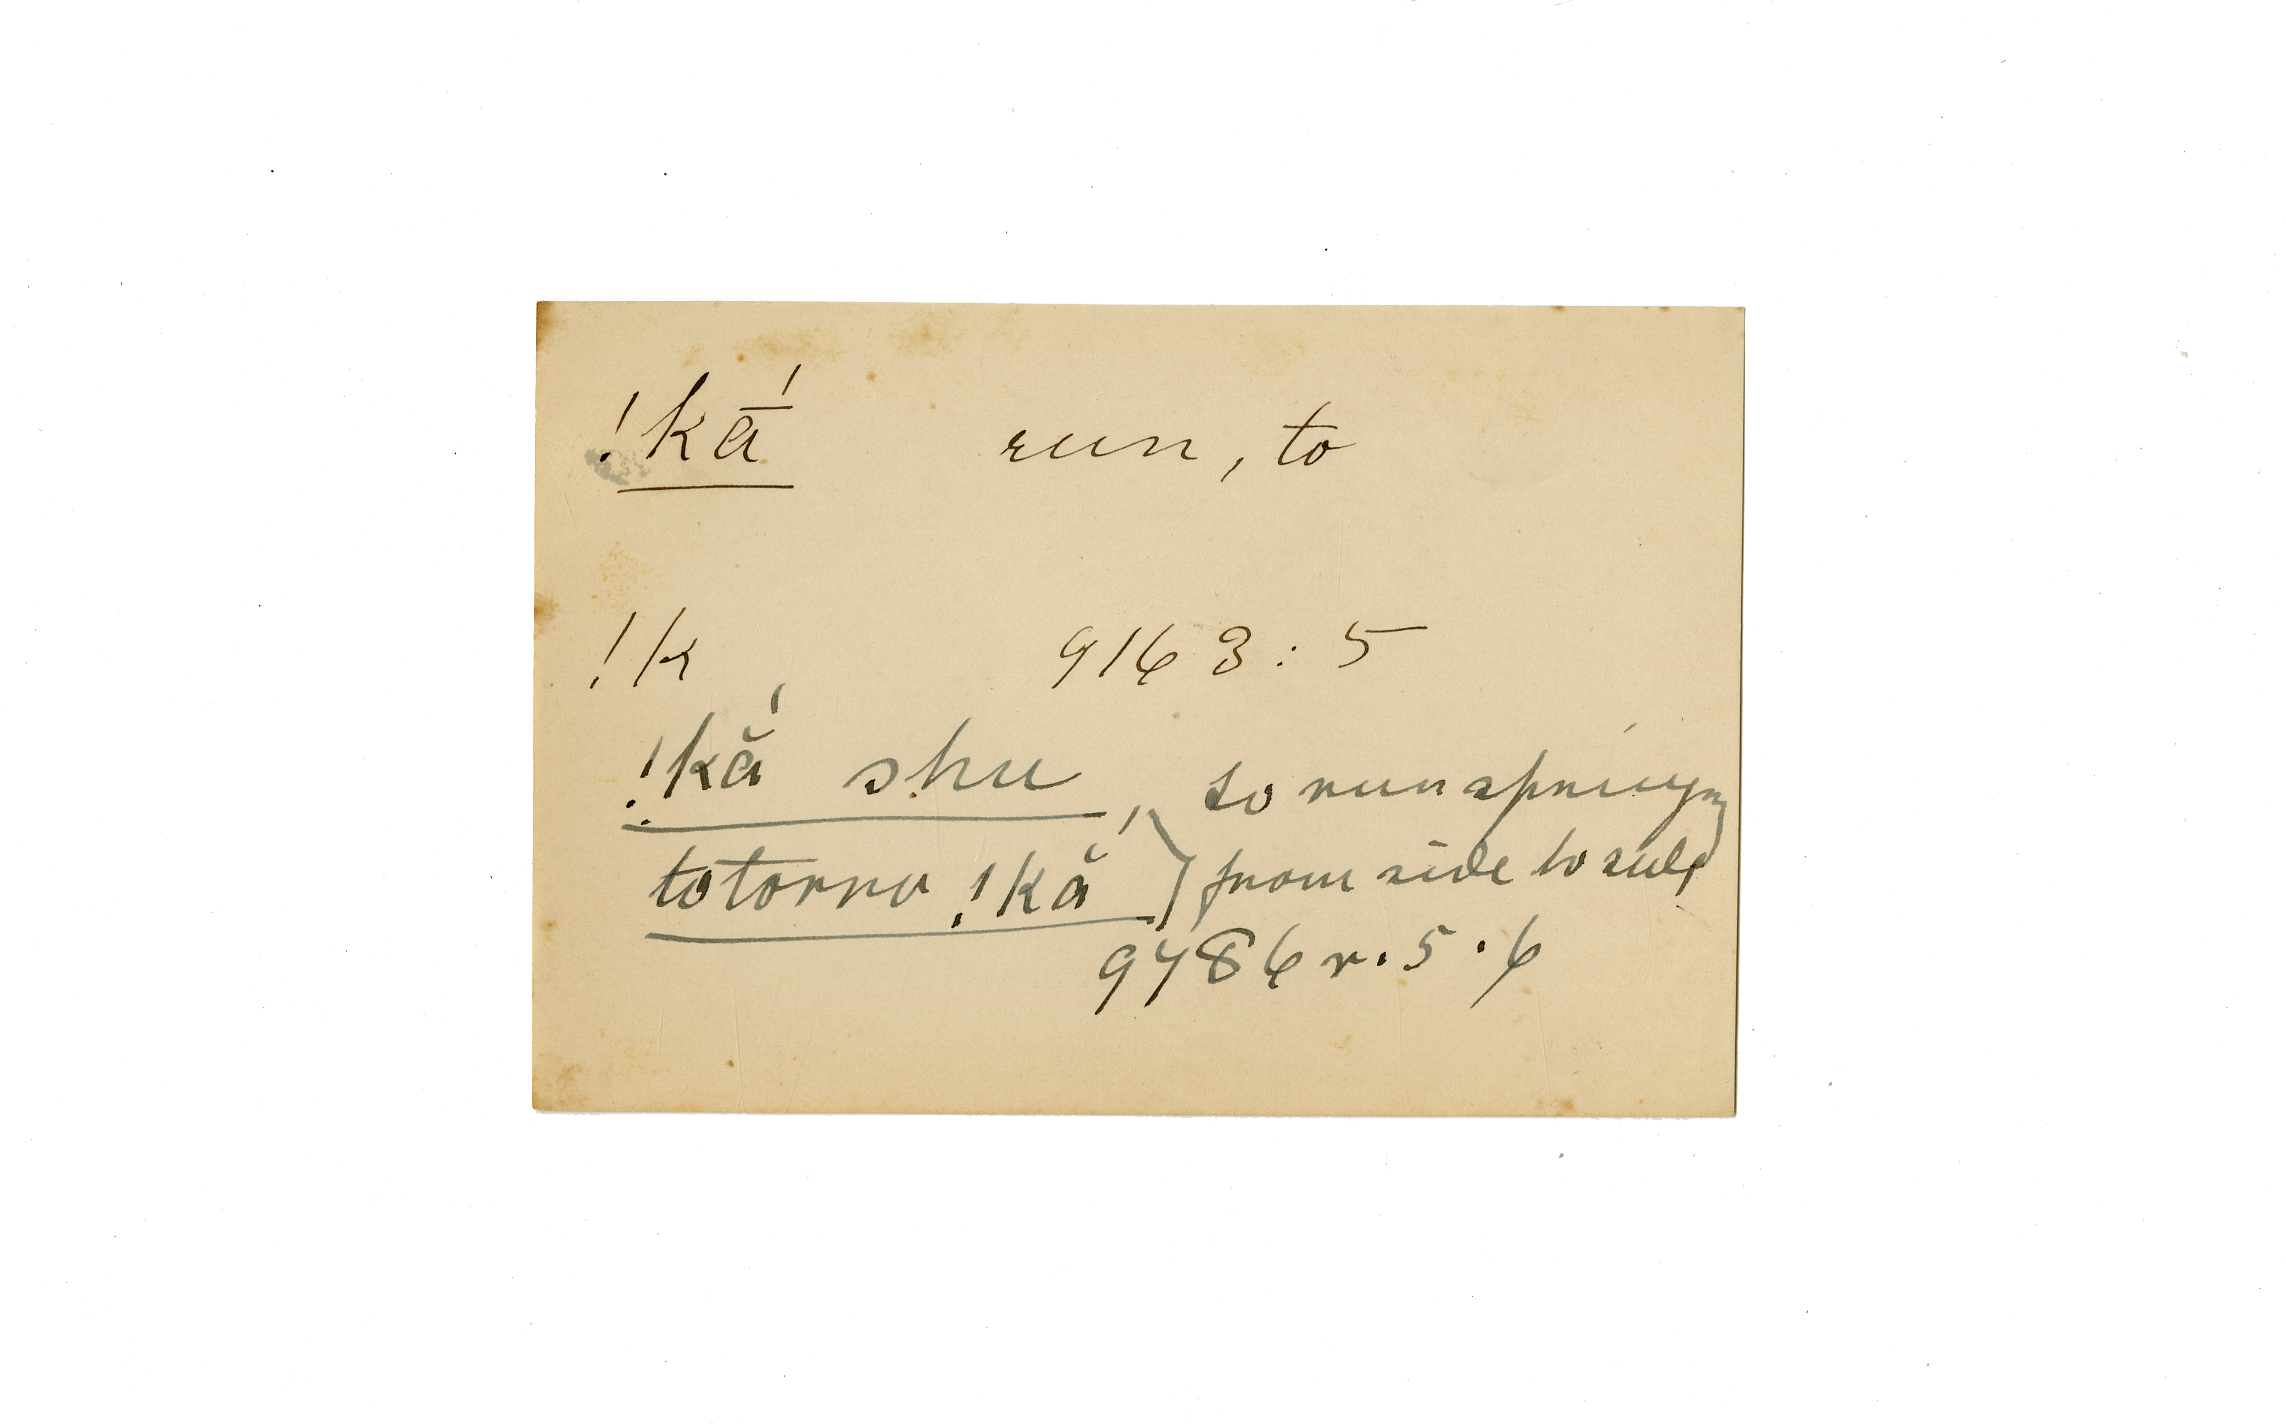 !kā́ run, to
!k 9163:5
!kắ shu, to run springing
totorro !kắ } from side to side
9486 r. 5.6